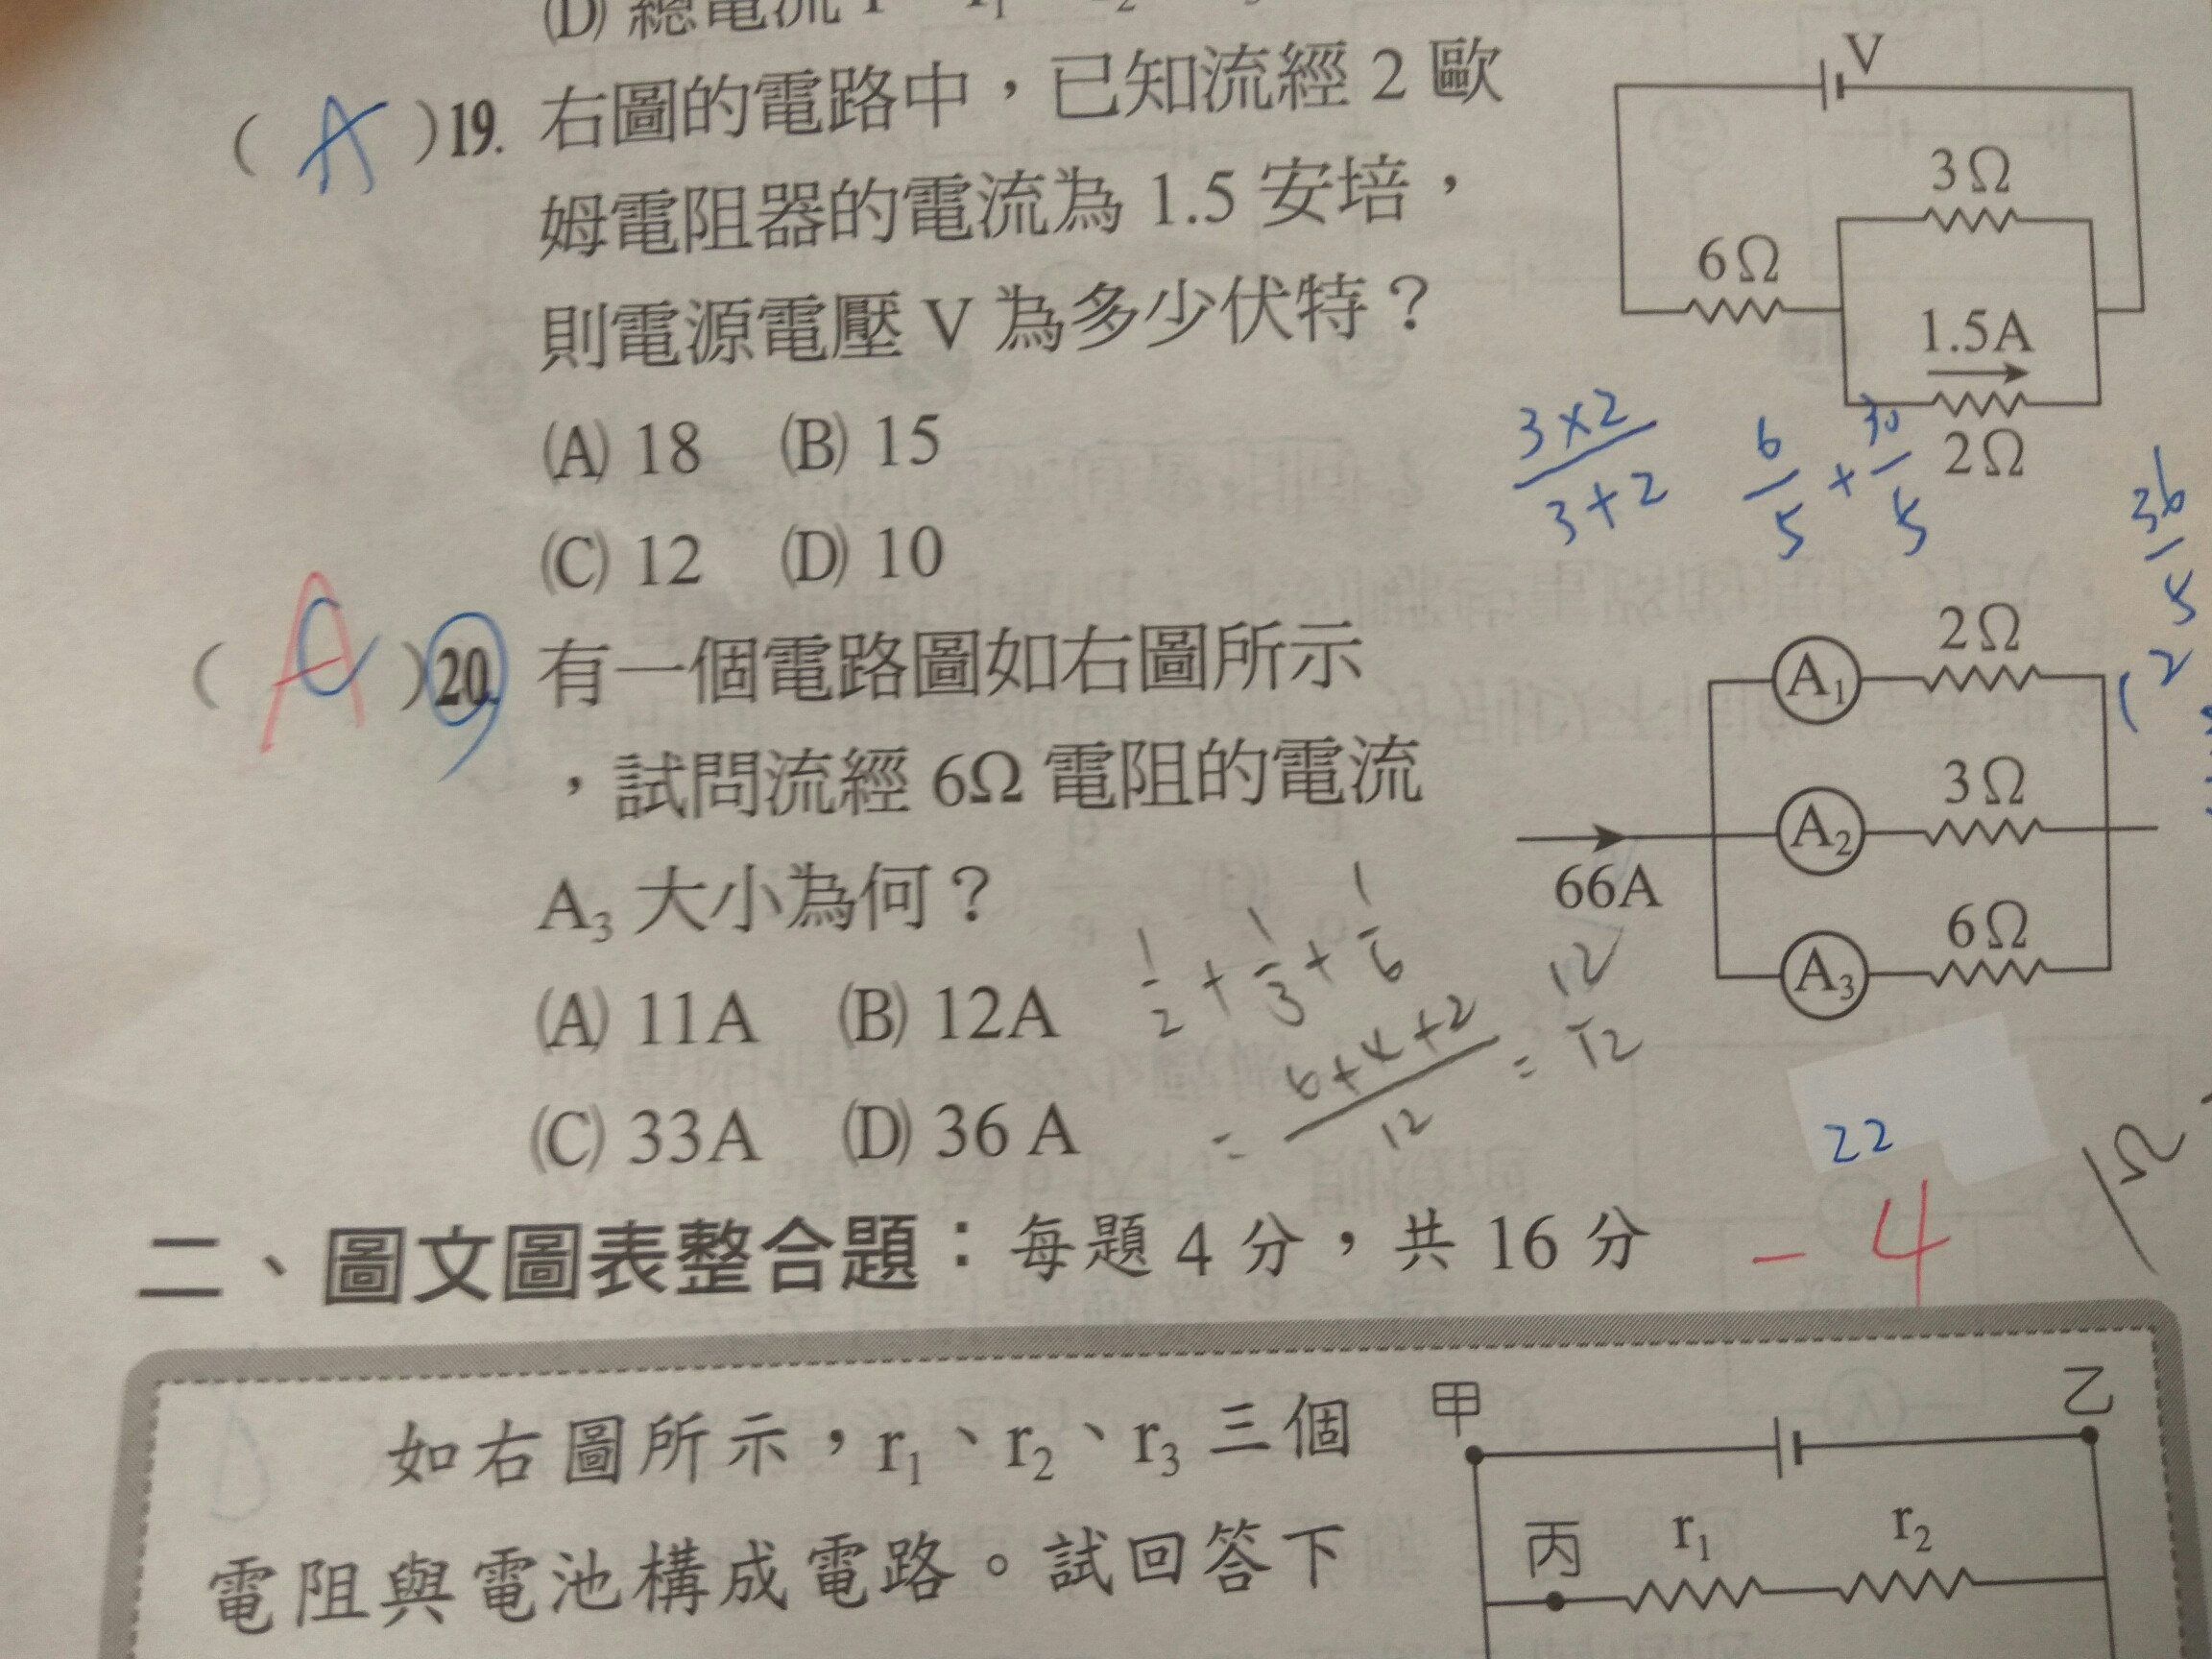 (D) 總電流 I
( A )19. 右圖的電路中，已知流經 2 歐
姆電阻器的電流為 1.5 安培，
則電源電壓 V 為多少伏特？
(A) 18 (B) 15
(C) 12 (D) 10
V
3Ω
6Ω
1.5A
2Ω
3×2
3+2
6/5 + 30/5
36/5
( A C )20. 有一個電路圖如右圖所示
，試問流經 6Ω 電阻的電流
A₃ 大小為何？
(A) 11A (B) 12A
(C) 33A (D) 36 A
A₁ 2Ω
A₂ 3Ω
66A
A₃ 6Ω
1/2 + 1/3 + 1/6
= 6+4+2/12 = 12/12
22
1Ω
二、圖文圖表整合題：每題 4 分，共 16 分 -4
如右圖所示，r₁、r₂、r₃ 三個
電阻與電池構成電路。試回答下
甲 乙
丙 r₁ r₂